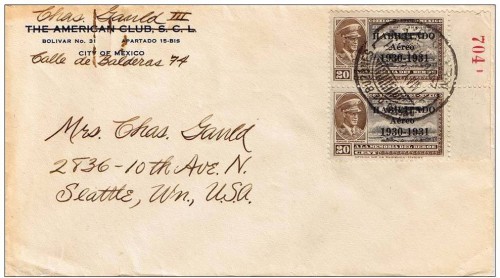 Chas. Gauld III
THE AMERICAN CLUB, S. C. L.
BOLIVAR No. 31 APARTADO 15-BIS
CITY OF MEXICO
Calle de Balderas 74
Mrs. Chas. Gauld
2836-10th Ave. N.
Seattle, Wn., U.S.A.
HABILITADO
Aéreo
1930-1931
20
A LA MEMORIA DEL HEROE
HABILITADO
Aéreo
1930-1931
20
A LA MEMORIA DEL HEROE
704